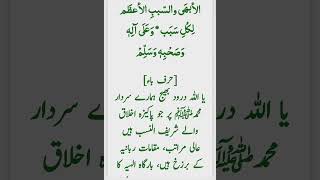 الأَبْهَى والسَّبَبِ الأَعْظَمِ
لِكُلِّ سَبَبٍ * وَعَلَى آلِهٖ
وَصَحْبِهٖ وَسَلِّمْ
[حرف باء]
یا اللہ درود بھیج ہمارے سردار
محمد ﷺ پر جو پاکیزہ اخلاق
والے شریف النسب ہیں
عالی مراتب، مقامات ربانیہ
کے برزخ ہیں، بارگاہ الٰہیہ کا